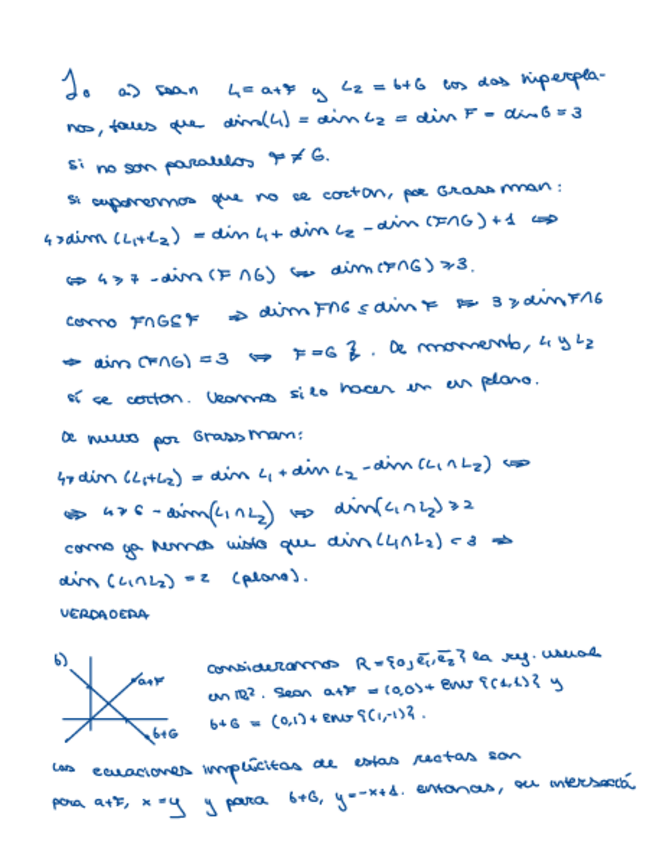 1. a) sean L₁ = a+F y L₂ = b+G los dos hiperpla-
nos, tales que dim(L₁) = dim L₂ = dim F = dim G = 3
si no son paralelos F ≠ G.
si suponemos que no se cortan, por Grassman:
4 ≥ dim (L₁+L₂) = dim L₁ + dim L₂ - dim (F∩G) + 1 ⇔
⇔ 4 ≥ 7 - dim (F ∩ G) ⇔ dim (F∩G) ≥ 3.
como F∩G⊆F ⇒ dim F∩G ≤ dim F ⇔ 3 ≥ dim F∩G
⇒ dim (F∩G) = 3 ⇔ F = G }. De momento, L₁ y L₂
sí se cortan. Veamos si lo hacen en un plano.
De nuevo por Grassman:
4 ≥ dim (L₁+L₂) = dim L₁ + dim L₂ - dim (L₁∩L₂) ⇔
⇔ 4 ≥ 6 - dim(L₁∩L₂) ⇔ dim(L₁∩L₂) ≥ 2
como ya hemos visto que dim (L₁∩L₂) < 3 ⇒
dim (L₁∩L₂) = 2 (plano).
VERDADERA
b)
a+F
b+G
consideramos R = {0; e̅₁, e̅₂} la ref. usual
en ℝ². Sean a+F = (0,0) + Env {(1,1)} y
b+G = (0,1) + Env {(1,-1)}.
Las ecuaciones implícitas de estas rectas son
para a+F, x = y y para b+G, y = -x+1. entonces, su intersecciá